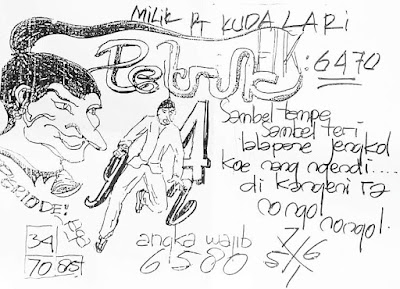 MILIK PT KUDA LARI
Pekund
FIK : 6470
Sambel tempe
Sambel teri
lalapane jengkol
koe nang ngendi....
di kangeni ra
nongol nongol.
4
PERIODE!
34
70 85
angka wajib
6580
7/6
5/1